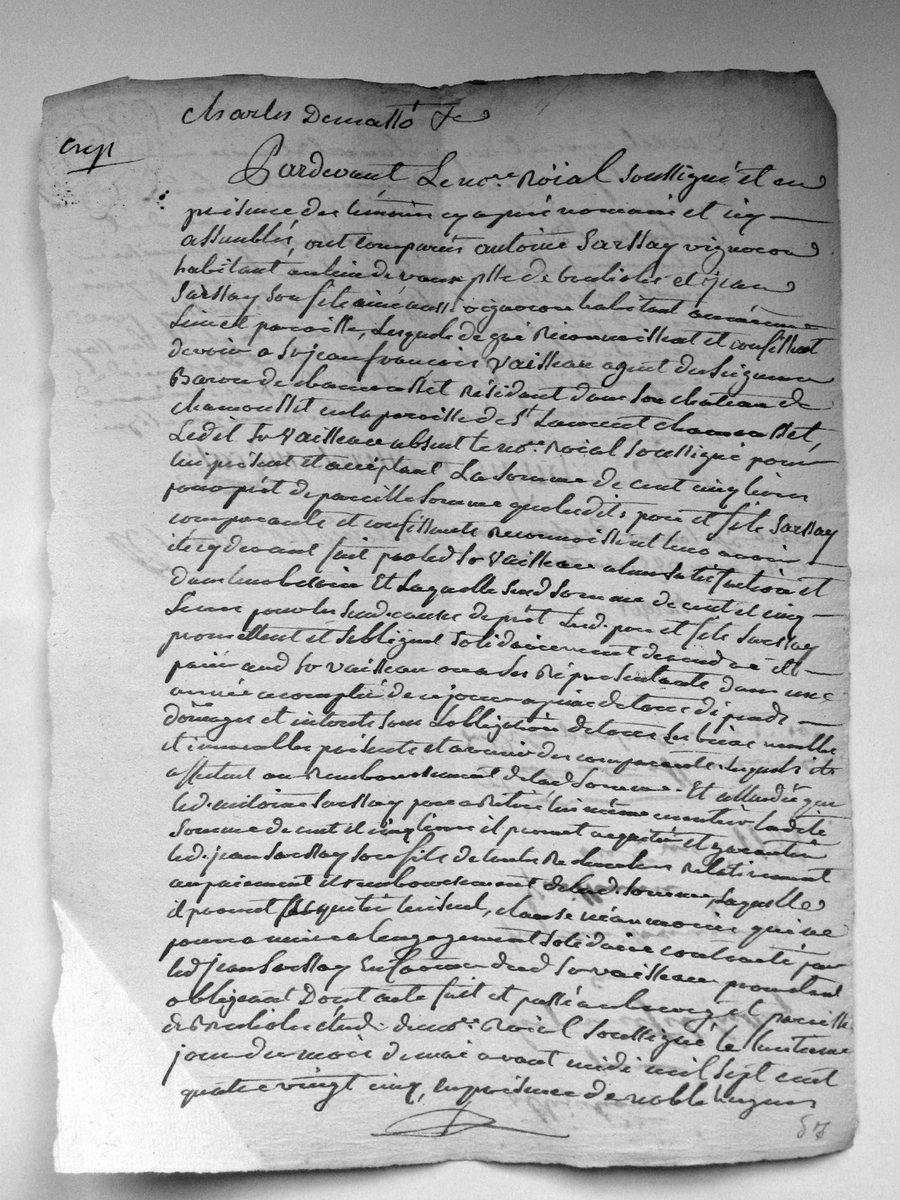 Charles Demassó
exp
Pardevant Le no.re Roïal Soussigné et en
présence des témoins cy après nommés et icy
assemblés, ont comparus antoine Sarssay vigneron
habitant au lieu de p.sse de brulioles et jean
Sarssay Son fils ainé aussi vigneron habitant au même
Lieu et paroisse, Lesquels de gré Reconnoissent et confessent
devoir a Sr jean françois Vaisseau agent du Seigneur
Baron de chamousset Résidant dans Son chateau de
chamousset en la paroisse de St Laurent chamousset,
Led. Sr Vaisseau absent le no.re Roïal Soussigné pour
lui présent et acceptant La Somme de cent cinq livres
pour prêt de pareille Somme que lesdits pere et fils Sarssay
comparants et confessants Reconnoissent leur avoir
été cy devant fait par led Sr Vaisseau a leur Satisfaction et
dans leur besoin Et Laquelle Susd Somme de cent et cinq
Livres pour les Susd. causes de prêt Lesd. pere et fils Sarssay
promettent et S'obligent Solidairement de rendre et
païer aud Sr Vaisseau ou a Ses Réprésentants dans une
année accomplie de ce jour a peine de tous dépends
dommages et interets Sous L'obligation de tous Ses biens meubles
et immeubles présents et avenir des comparants Lesquels ils
affectent au Remboursement de lad Somme. Et attendu que
led. antoine Sarssay pere a Retiré lui même en entier ladite
Somme de cent et cinq livres il promet acquiter et garantir
led. jean Sarssay Son fils de toutes Recherches Relativement
au paiement et remboursement de lad. Somme, Laquelle
il promet acquiter lui seul, clause néanmoins qui ne
pourra nuire a l'engagement Solidaire contracté par
led jean Sarssay En faveur dud Sr Vaisseau promettant
obligeant Dont acte fait et passé au bourg et paroisse
de Brulioles étude du no.re Roïal Soussigné le
jour du mois de mai avant midi mil Sept cent
quatre vingt cinq, En présence de noble hugues